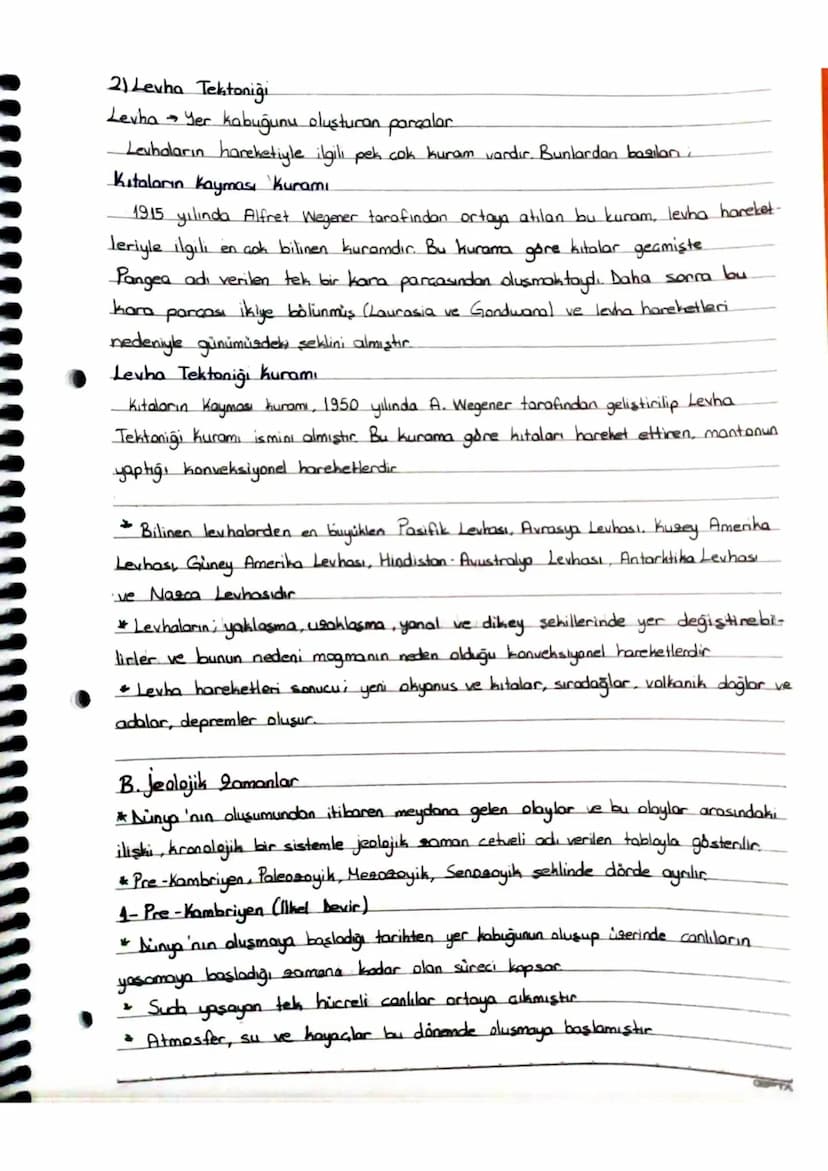 2) Levha Tektoniği
Levha → Yer kabuğunu oluşturan parçalar
Levhaların hareketiyle ilgili pek çok kuram vardır. Bunlardan bazıları;
Kıtaların Kayması Kuramı
1915 yılında Alfret Wegener tarafından ortaya atılan bu kuram, levha hareket-
leriyle ilgili en çok bilinen kuramdır. Bu kurama göre kıtalar geçmişte
Pangea adı verilen tek bir kara parçasından oluşmaktaydı. Daha sonra bu
kara parçası ikiye bölünmüş (Laurasia ve Gondwana) ve levha hareketleri
nedeniyle günümüzdeki şeklini almıştır.
Levha Tektoniği Kuramı
Kıtaların Kayması kuramı, 1950 yılında A. Wegener tarafından geliştirilip Levha
Tektoniği Kuramı ismini almıştır. Bu kurama göre kıtaları hareket ettiren, mantonun
yaptığı konveksiyonel hareketlerdir
* Bilinen levhalardan en büyükleri Pasifik Levhası, Avrasya Levhası, Kuzey Amerika
Levhası, Güney Amerika Levhası, Hindistan-Avustralya Levhası, Antarktika Levhası
ve Nazca Levhasıdır
* Levhaların; yaklaşma, uzaklaşma, yanal ve dikey şekillerinde yer değiştirebi-
lirler ve bunun nedeni magmanın neden olduğu konveksiyonel hareketlerdir
* Levha hareketleri sonucu; yeni okyanus ve kıtalar, sıradağlar, volkanik dağlar ve
adalar, depremler oluşur.
B. Jeolojik Zamanlar
* Dünya'nın oluşumundan itibaren meydana gelen olaylar ve bu olaylar arasındaki
ilişki, kronolojik bir sistemle jeolojik zaman cetveli adı verilen tabloyla gösterilir.
* Pre-Kambriyen, Paleozoyik, Mesozoyik, Senozoyik şeklinde dörde ayrılır.
1- Pre-Kambriyen (İlkel Devir)
* Dünya'nın oluşmaya başladığı tarihten yer kabuğunun oluşup üzerinde canlıların
yaşamaya başladığı zamana kadar olan süreci kapsar
* Suda yaşayan tek hücreli canlılar ortaya çıkmıştır
* Atmosfer, su ve kayaçlar bu dönemde oluşmaya başlamıştır